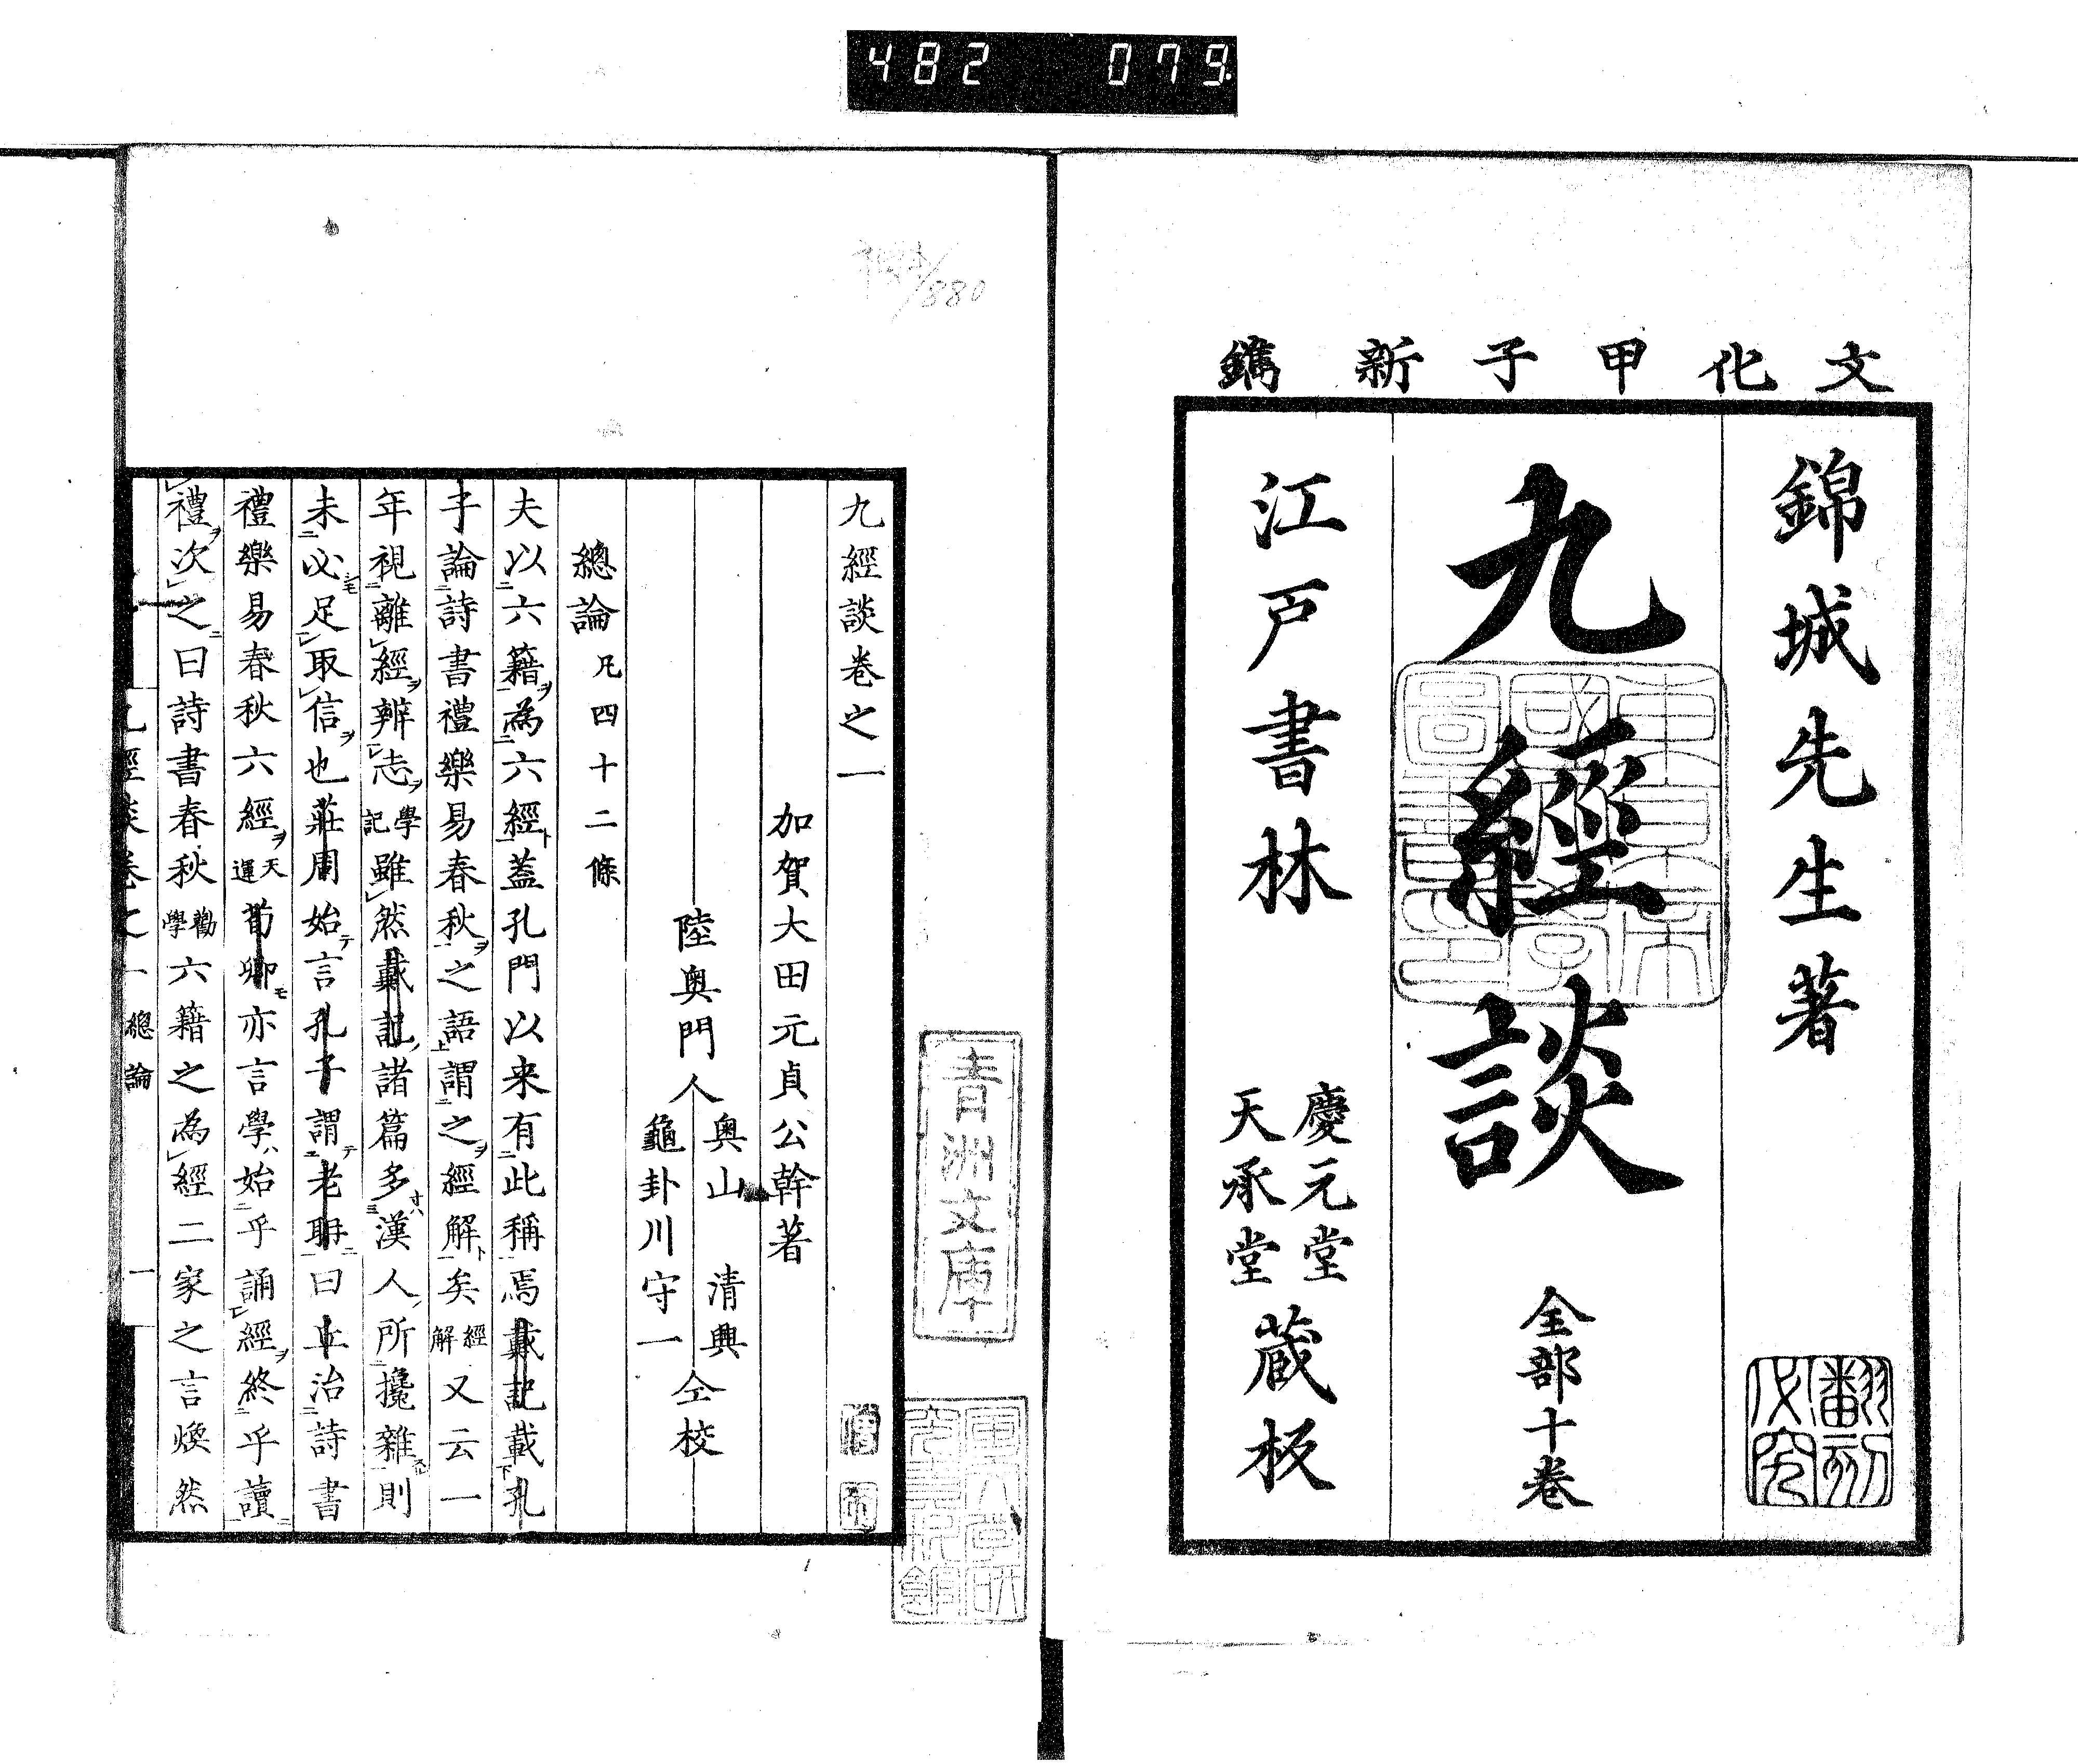 482 079
文化甲子新鐫
錦城先生著
九經談
全部十卷
江戸書林
慶元堂
天承堂
蔵板
翻刻必究
東京帝國大學圖書印
青洲文庫
880
九經談卷之一
加賀大田元貞公幹著
陸奥門人
奥山 清興
龜卦川守一
仝校
總論 凡四十二條
夫以六籍為六經蓋孔門以来有此稱焉戴記載孔
子論詩書禮樂易春秋之語謂之經解矣 經解 又云一
年視離經辨志 學記 雖然戴記諸篇多漢人所攙雜則
未必足取信也莊周始言孔子謂老聃曰丘治詩書
禮樂易春秋六經 天運 荀卿亦言學始乎誦經終乎讀
禮次之曰詩書春秋 勸學 六籍之為經二家之言煥然
九經談卷之一 總論 一